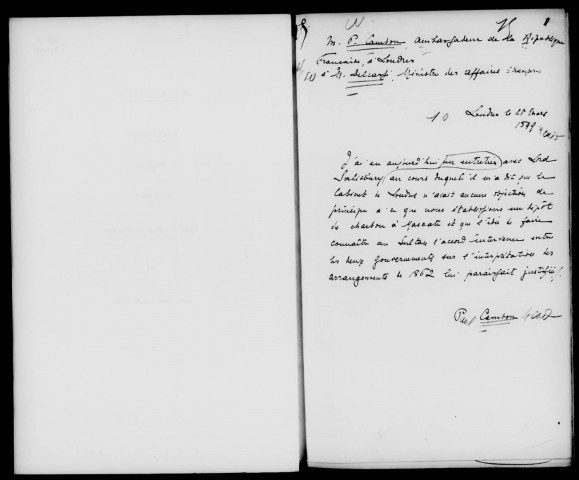 M. P. Cambon, ambassadeur de la République
Française, à Londres
à M. Delcassé, Ministre des affaires étrangères
10 Londres le 25 mars
1899
J'ai eu aujourd'hui un entretien avec Lord
Salisbury au cours duquel il m'a dit que le
Cabinet de Londres n'avait aucune objection de
principe à ce que nous établissions un dépôt
de charbon à Mascate et que l'idée de faire
connaître au Sultan l'accord intervenu entre
les deux gouvernements sur l'interprétation des
arrangements de 1862 lui paraissait justifiée.
Paul Cambon